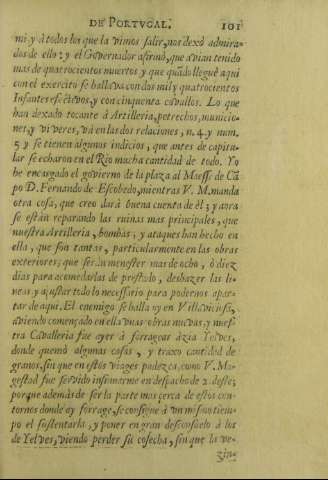 DE PORTVGAL. 101
mi y à todos los que la vimos salir, nos dexò admira-
dos de ello: y el Governador afirmò, que avian tenido
mas de quatrocientos muertos y que quãdo llegue aqui
con el exercito se hallava con dos mil y quatrocientos
Infantes efectivos, y con cinquenta cavallos. Lo que
han dexado tocante à Artilleria, petrechos, municio-
nes, y viveres, và en las dos relaciones, n. 4. y num.
5 y se tienen algunos indicios, que antes de capitu-
lar se echaron en el Rio mucha cantidad de todo. Yo
he encargado el govierno de la plaza al Maesse de Cã
po D. Fernando de Escobedo, mientras V. M. manda
otra cosa, que creo darà buena cuenta de èl; y aora
se estàn reparando las ruinas mas principales, que
nuestra Artilleria, bombas, y ataques han hecho en
ella, que son tantas, particularmente en las obras
exteriores, que serà menester mas de ocho, ò diez
dias para acomodarlas de prestado, deshazer las li-
neas y ajustar todo lo necessario para podernos apar-
tar de aqui. El enemigo se halla oy en Villaviciosa,
aviendo començado en ella unas obras nuevas, y nuest-
tra Cavalleria fue ayer à forragear àzia Yelves,
donde quemò algunas casas, y traxo cantidad de
granos, sin que en estos viages padezca, como V. Ma-
gestad fue servido insinuarme en despacho de 2. deste;
porque además de ser la parte mas cerca de estos con-
tornos donde ay forrage, se consigue à un mismo tiem-
po el sustentarla, y poner en gran desconsuelo à los
de Yelves, viendo perder su cosecha, sin que la ve-
zin-